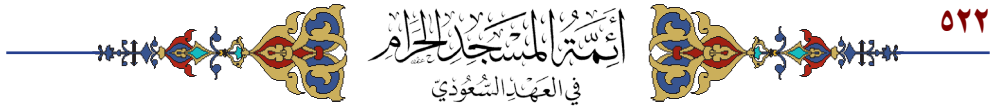 ٥٢٢
أئمة المسجد الحرام
في العهد السعودي